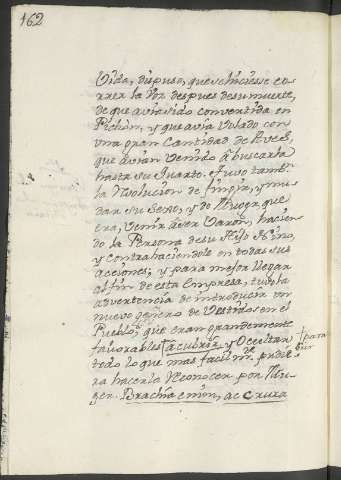 162
Vida, dispuso, que se hiciesse co-
rrer la Voz despues de su muerte,
de que avia sido convertida en
Pichòn, y que avia Volado con
una gran Cantidad de Aves,
que avian Venido à buscarla
hasta su Quarto. Tuvo tamb.n
la Resolucion de fingir, y mu-
dar su Sexo, y de Muger, que
era, Venir à ser Varòn, hacien-
do la Persona de su Hijo Nino,
y contrahaciendole en todas sus
acciones; y para mejor llegar
al fin de esta Empresa, tuvo la
advertencia de introducir un
nuevo genero de Vestidos en el
Pueblo, que eran grandemente
favorables † a cubrir, y Ocultar
† para cubrir
todo lo que mas facilm.te pudie-
ra hacerla Reconocer por Mu-
ger. Brachia enim, ac Crura